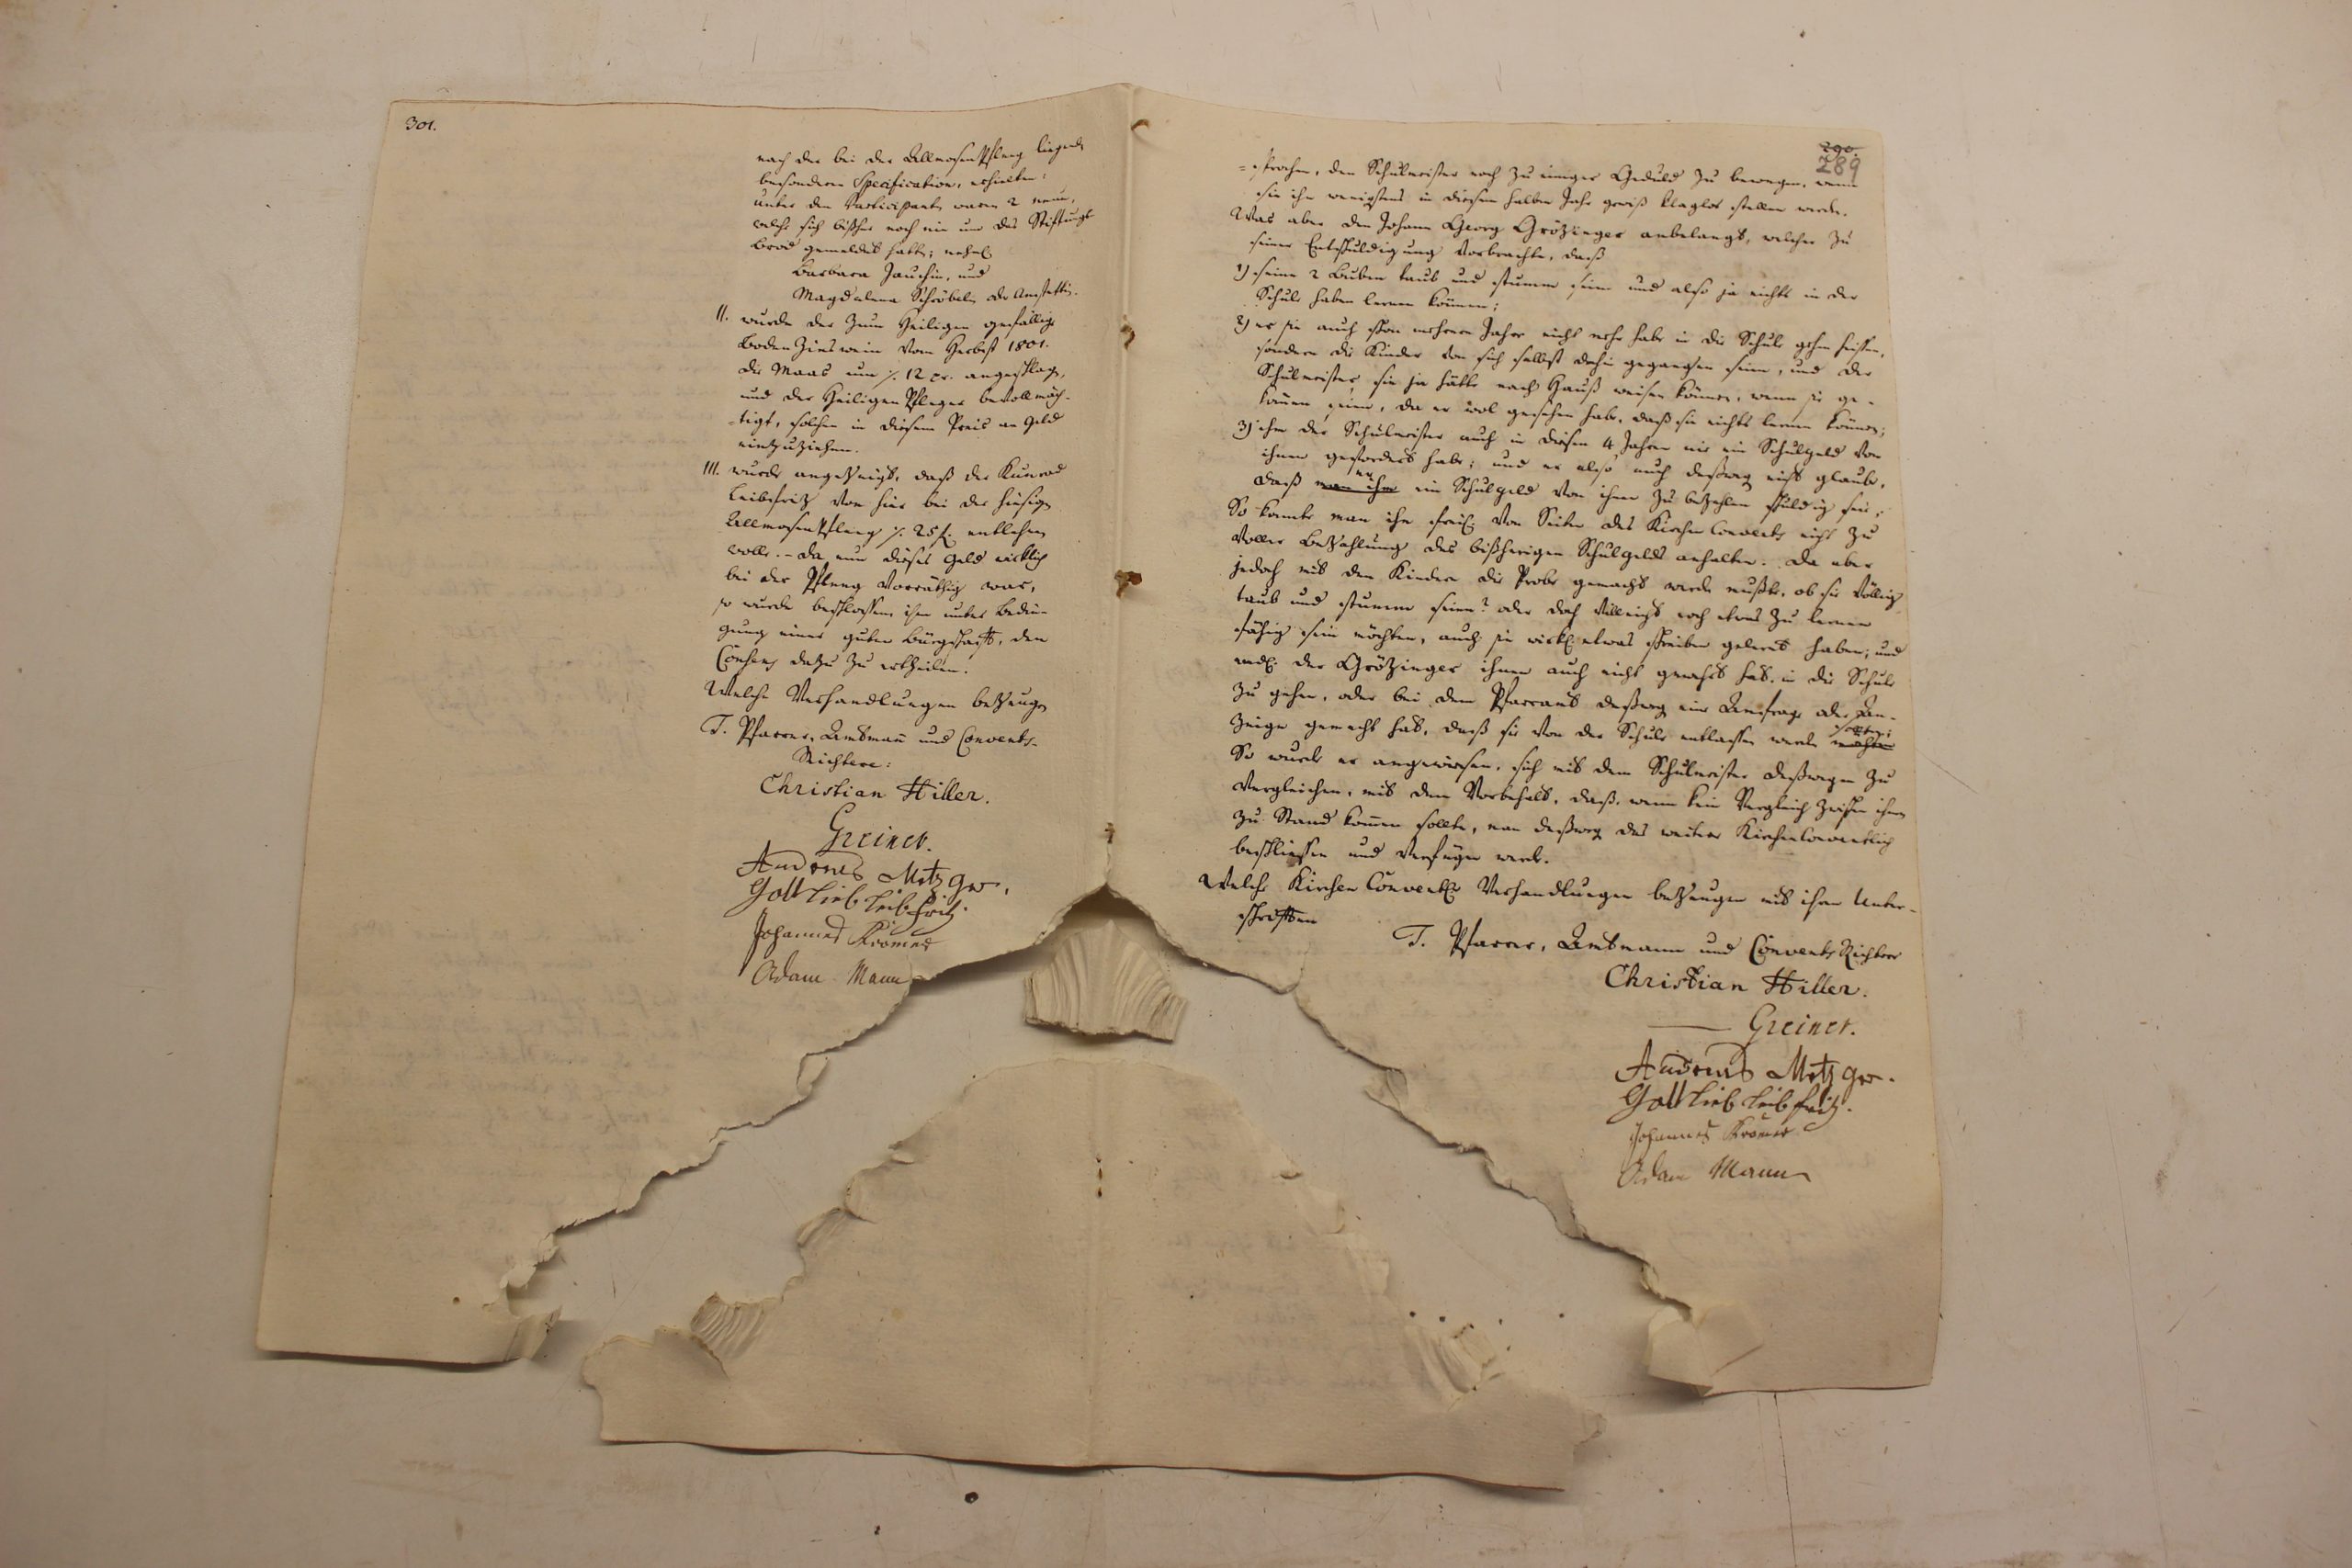 301.
nach der bei der Allmosenpfleeg liegende
besondern Specification, erhielten:
unter den Participanten waren 2 neue,
welche sich bißher noch nie um das Stiftungs
Brod gemeldet hatten; nehml.
Barbara Jauchin, und
Magdalena Schröbele
II. wurde der zum Heiligen gefällige
Boden Zinswein vom Herbst 1801.
die Maas um /. 12 xr. angeschlagen,
und der HeiligenPfleger bevollmäch-
-tigt, solchen in diesem Preis an Geld
einzuziehen.
III. wurde angezeigt, daß der Kunrad
Leibfriz von hier bei der hiesigen
Allmosenpfleeg /. 25 f. entlehnen
wolle. - Da nun dieses Geld wirklich
bei der Pfleeg vorräthig war,
so wurde beschlossen ihm unter Bedin-
gung einer guten Bürgschaft, den
Consens dazu zu ertheilen.
Welche Verhandlungen bezeugen
T. Pfarrer, Amtmann und Convents-
Richtere:
Christian Hiller.
Greiner.
Andreas Metzger.
Gottlieb Leibfritz.
Johannes Kromer
Adam Mann
290.
289
=sprochen, den Schulmeister noch zu einiger Geduld zu bewegen, wenn
sie ihn wenigstens in diesem halben Jahr gewiß klaglos stellen werde.
Was aber den Johann Georg Grözinger anbelangt, welcher zu
seiner Entschuldigung vorbrachte, daß
1) seine 2 Buben taub und stumm seien und also ja nichts in der
Schule haben lernen können;
2) er sie auch schon mehrere Jahre nicht mehr habe in die Schule gehen heissen,
sondern die Kinder von sich selbst dahin gegangen seien, und der
Schulmeister sie ja hätte nach Hauß weisen können, wenn sie ge-
kommen seien, da er wol gesehen habe, daß sie nichts lernen können;
3) ihm der Schulmeister auch in diesen 4 Jahren nie ein Schulgeld von
ihnen gefordert habe; und er also auch deßweg nicht glaube,
daß man ihm er ein Schulgeld von ihnen zu bezahlen schuldig sei;
So konnte man ihn freil. von Seiten des KirchenConvents nicht zu
voller Bezahlung des bißherigen Schulgelds anhalten. Da aber
jedoch mit den Kindern die Probe gemacht werden mußte, ob sie völlig
taub und stumm seien? oder doch villeicht noch etwas zu lernen
fähig sein möchten, auch sie wirkl. etwas schreiben gelernt haben; und
endl. der Grözinger ihnen auch nicht gewehrt hat, in die Schule
zu gehen, oder bei dem Pfarramt deßweg eine Anfrage oder An-
zeige gemacht hat, daß sie von der Schule entlassen werden möchten sollten;
So wurde er angewiesen, sich mit dem Schulmeister deßwegen zu
vergleichen, mit dem Vorbehalt, daß, wenn kein Vergleich zwischen ihnen
zu Stand kommen sollte, man deßweg das weitere KirchenConventlich
beschliessen und verfügen werde.
Welche KirchenConventl. Verhandlungen bezeugen mit ihren Unter-
schriften
T. Pfarrer, Amtmann und ConventsRichtere
Christian Hiller.
Greiner.
Andreas Metzger.
Gottlieb Leibfritz.
Johannes Kromer
Adam Mann